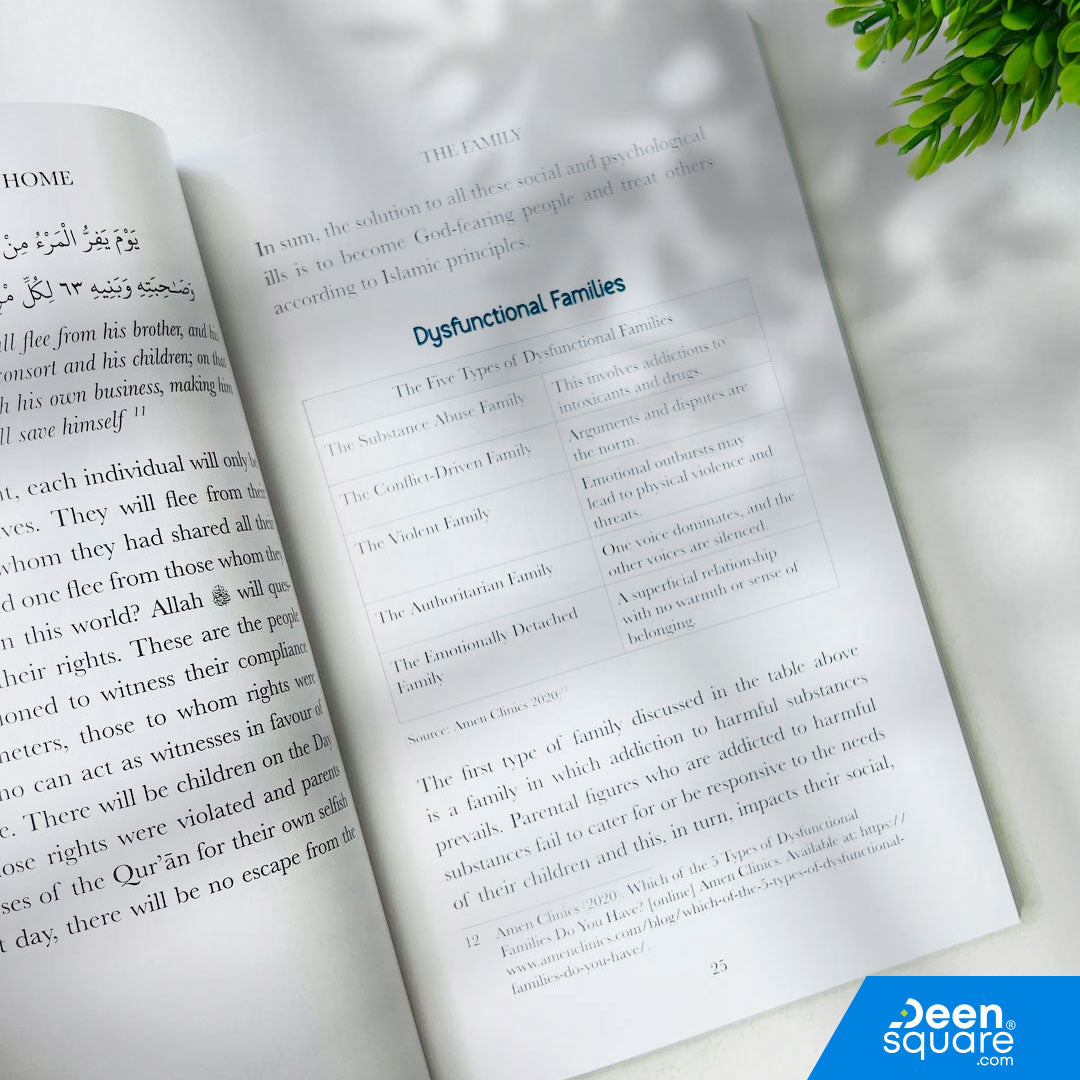 HOME
يَوْمَ يَفِرُّ الْمَرْءُ مِنْ
وَصَـٰحِبَتِهِ وَبَنِيهِ ٦٣ لِكُلِّ
ll flee from his brother, and his
onsort and his children; on that
h his own business, making him
ll save himself 11
t, each individual will only be
ves. They will flee from their
whom they had shared all their
d one flee from those whom they
n this world? Allah ﷻ will ques-
their rights. These are the people
ioned to witness their compliance
meters, those to whom rights were
ho can act as witnesses in favour of
e. There will be children on the Day
ose rights were violated and parents
ses of the Qur'ān for their own selfish
t day, there will be no escape from the
THE FAMILY
In sum, the solution to all these social and psychological
ills is to become God-fearing people and treat others
according to Islamic principles.
Dysfunctional Families
The Five Types of Dysfunctional Families
The Substance Abuse Family
This involves addictions to
intoxicants and drugs.
The Conflict-Driven Family
Arguments and disputes are
the norm.
The Violent Family
Emotional outbursts may
lead to physical violence and
threats.
The Authoritarian Family
One voice dominates, and the
other voices are silenced.
The Emotionally Detached
Family
A superficial relationship
with no warmth or sense of
belonging.
[Source: Amen Clinics 2020]12
The first type of family discussed in the table above
is a family in which addiction to harmful substances
prevails. Parental figures who are addicted to harmful
substances fail to cater for or be responsive to the needs
of their children and this, in turn, impacts their social,
12 Amen Clinics (2020). Which of the 5 Types of Dysfunctional
Families Do You Have? [online] Amen Clinics. Available at: https://
www.amenclinics.com/blog/which-of-the-5-types-of-dysfunctional-
families-do-you-have/.
25
Deen
square®
.com